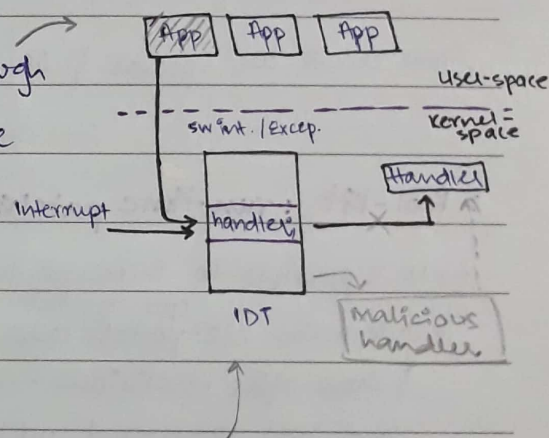 App App App
ugh
user-space
e
sw int. / Excep.
kernel-
space
Handler
Interrupt
handleri
IDT
malicious
handler